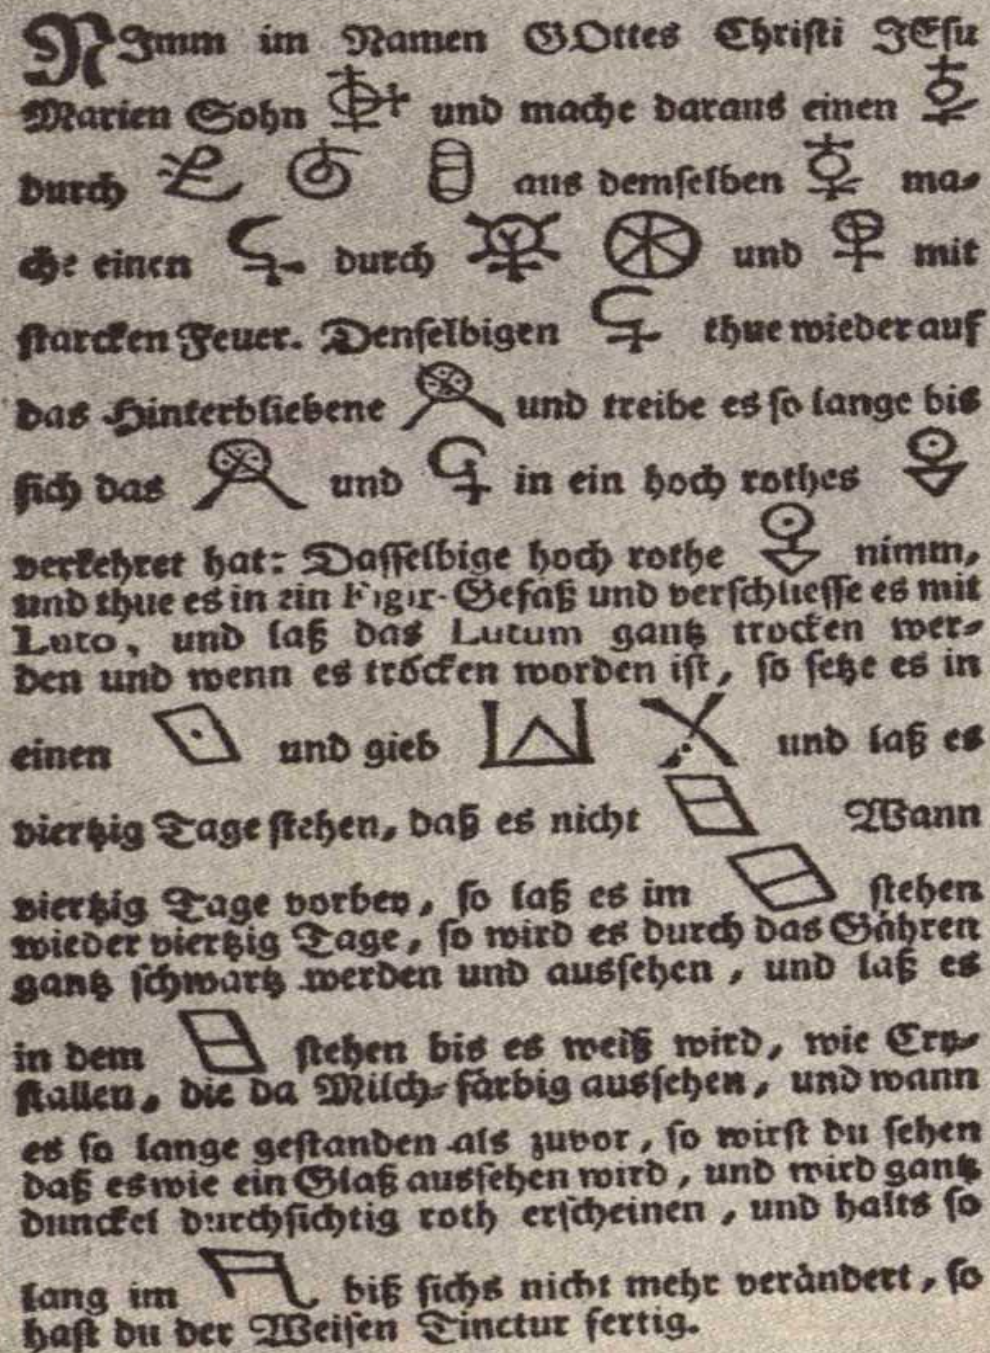 NImm im Namen GOttes Christi JEsu
Marien Sohn und mache daraus einen
durch aus demselben ma-
che einen durch und mit
starcken Feuer. Denselbigen thue wieder auf
das Hinterbliebene und treibe es so lange bis
sich das und in ein hoch rothes
verkehret hat: Dasselbige hoch rothe nimm,
und thue es in ein Figir-Gefäß und verschliesse es mit
Luto, und laß das Lutum gantz trocken wer-
den und wenn es tröcken worden ist, so setze es in
einen und gieb und laß es
viertzig Tage stehen, daß es nicht Wann
viertzig Tage vorbey, so laß es im stehen
wieder viertzig Tage, so wird es durch das Gähren
gantz schwartz werden und aussehen, und laß es
in dem stehen bis es weiß wird, wie Cry-
stallen, die da Milch-färbig aussehen, und wann
es so lange gestanden als zuvor, so wirst du sehen
daß es wie ein Glaß aussehen wird, und wird gantz
dunckel durchsichtig roth erscheinen, und halts so
lang im biß sichs nicht mehr verändert, so
hast du der Weisen Tinctur fertig.